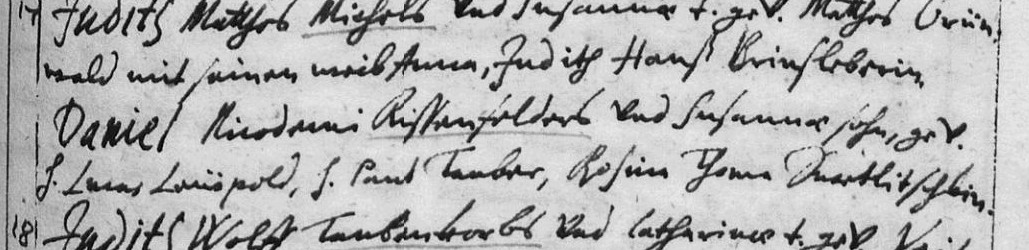 17 Judith Matthes Michels und Susannae t. gev. Matthes Grün,
wald mit seinen weib Anna, Judith Hanß
Daniel Nicodemi Rissenfelders und Susannae sohn, gev.
H. Lucas Leüpold, H. Paul Tauber, Rosina Thoma
18 Judith Wolff Taubenkorbs und Catharinae t. gev. Veit